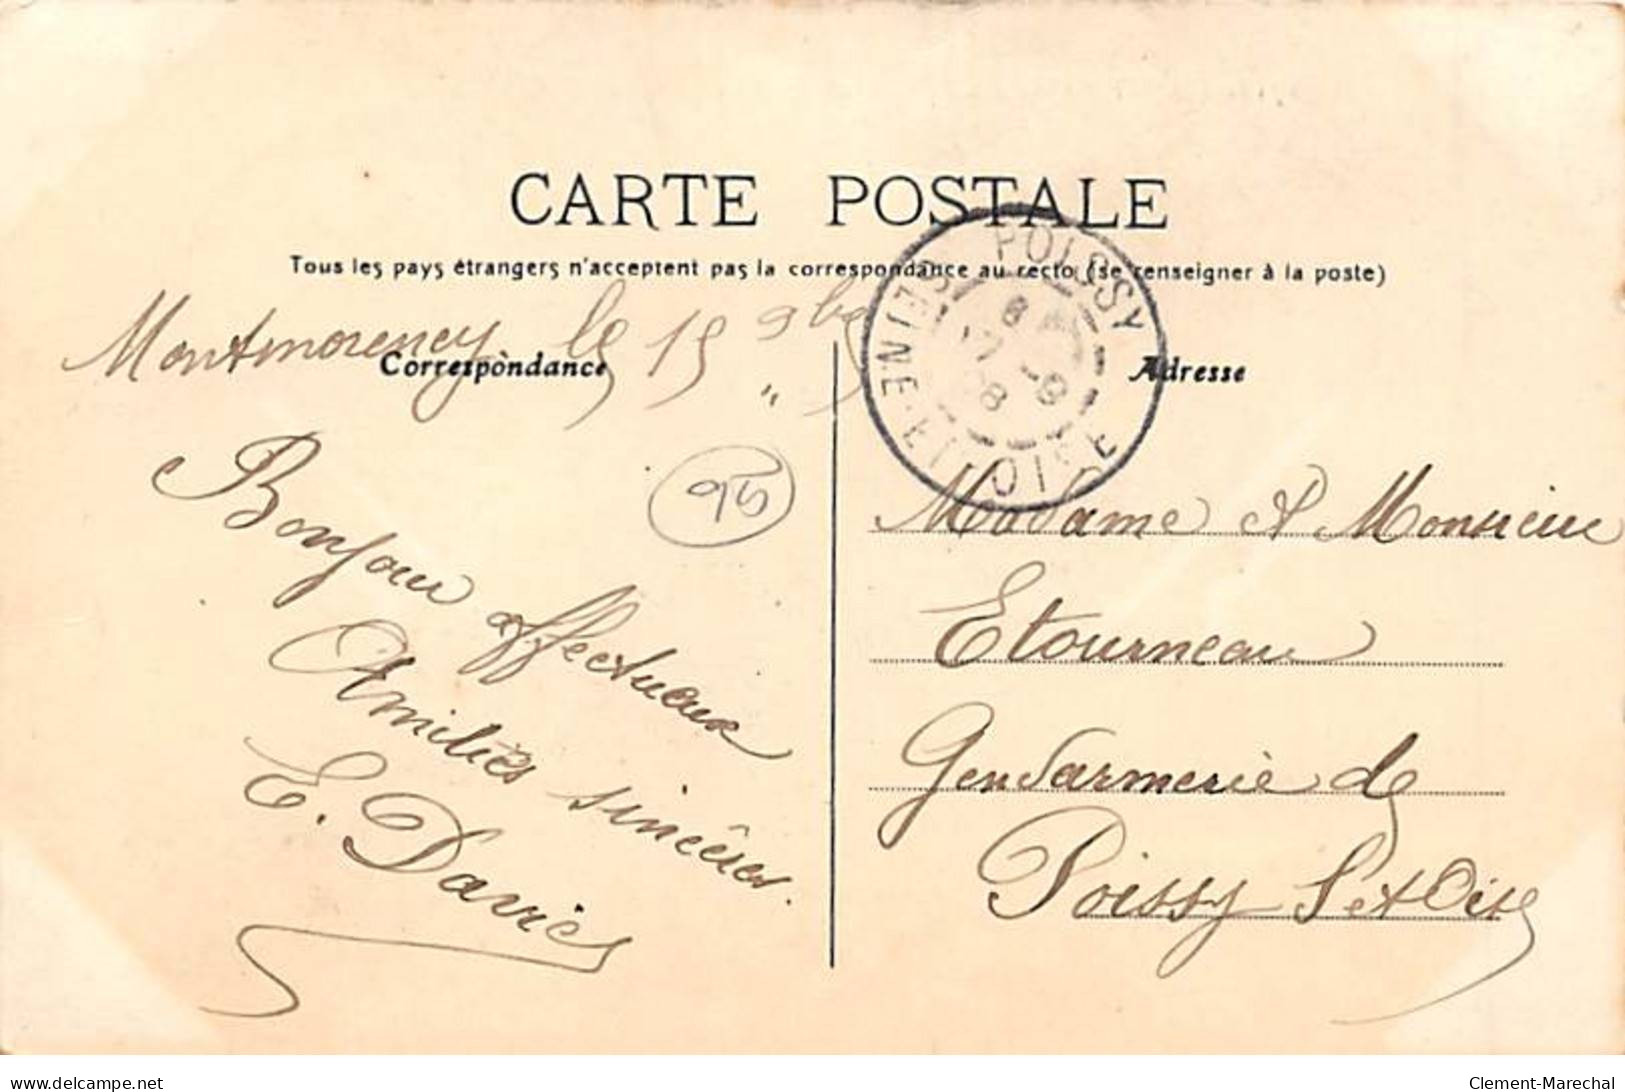 CARTE POSTALE
Tous les pays étrangers n'acceptent pas la correspondance au recto (se renseigner à la poste)
POISSY
SEINE-ET-OISE
Montmorency le 15 9bre
Correspondance
Adresse
95
Bonjour affectueux
Amitiés sincères.
E. Davies
Madame et Monsieur
Etourneau
Gendarmerie de
Poissy S et Oise
www.delcampe.net
Clement-Marechal